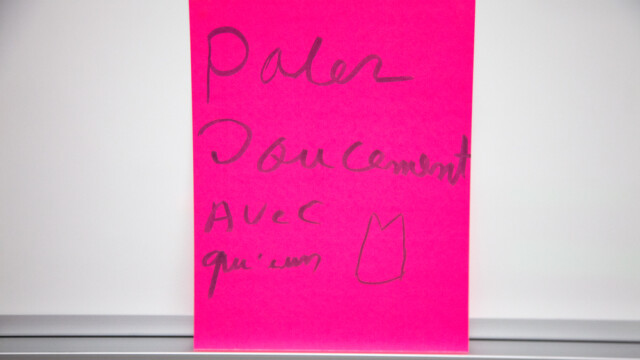 Paler
Doucement
Avec
qu'un